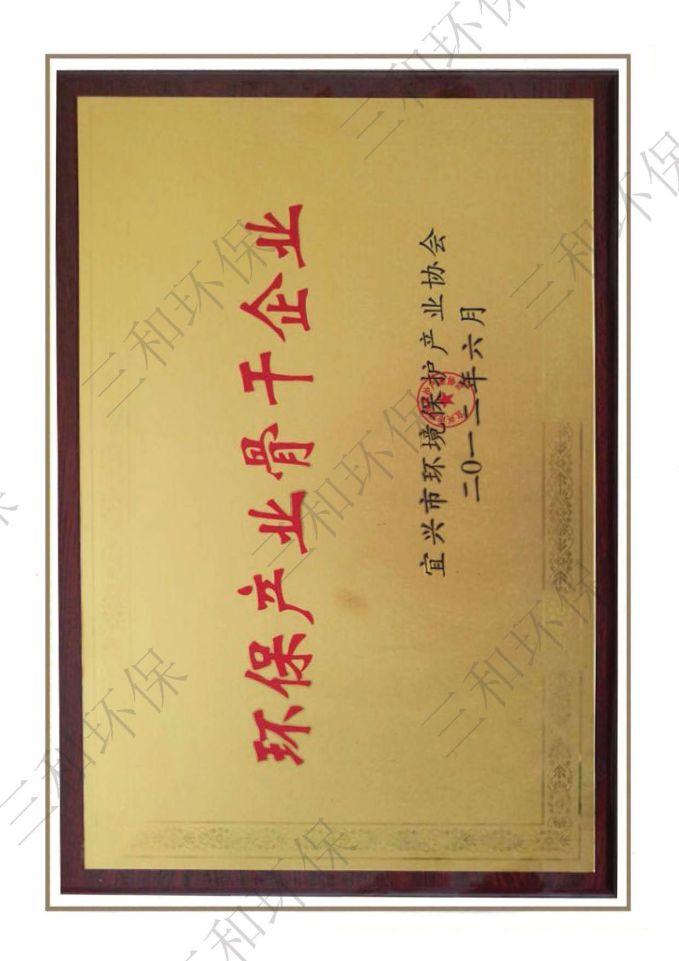 环保产业骨干企业
宜兴市环境保护产业协会
二〇一二年六月
三和环保
三和环保
三和环保
三和环保
三和环保
三和环保
三和环保